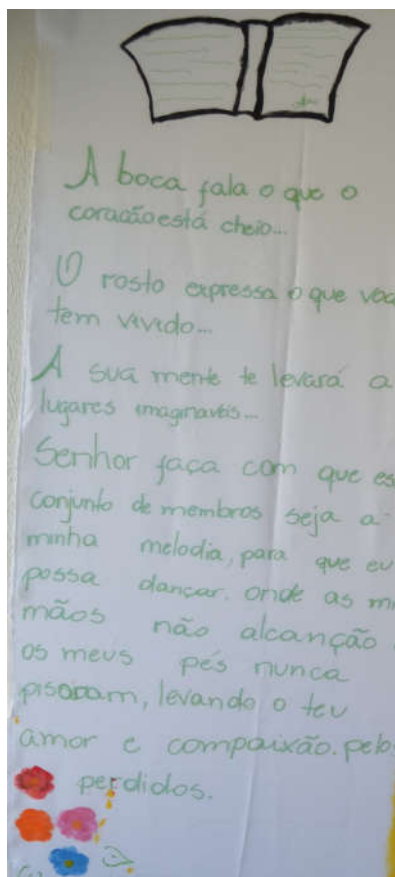 A boca fala o que o
coração está cheio...
O rosto expressa o que voc
tem vivido...
A sua mente te levará a
lugares imagináveis...
Senhor faça com que es
conjunto de membros seja a
minha melodia, para que eu
possa dançar. onde as m
mãos não alcanção
os meus pés nunca
pisaram, levando o teu
amor e compaixão. pelo
perdidos.